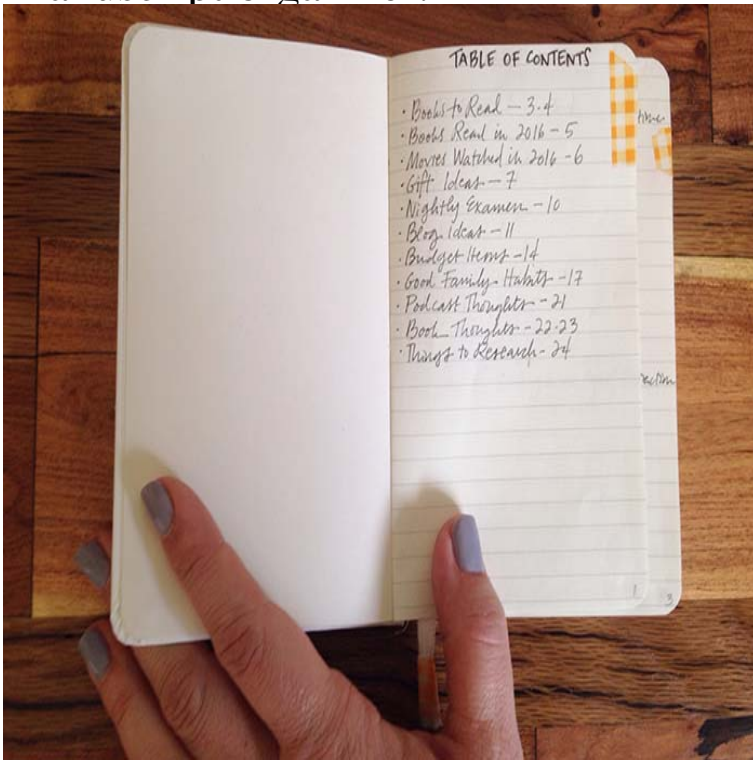 TABLE OF CONTENTS
· Books to Read – 3-4
· Books Read in 2016 – 5
· Movies Watched in 2016 – 6
· Gift Ideas – 7
· Nightly Examen – 10
· Blog Ideas – 11
· Budget Items – 14
· Good Family Habits – 17
· Podcast Thoughts – 21
· Book Thoughts – 22-23
· Things to Research – 24
1
3